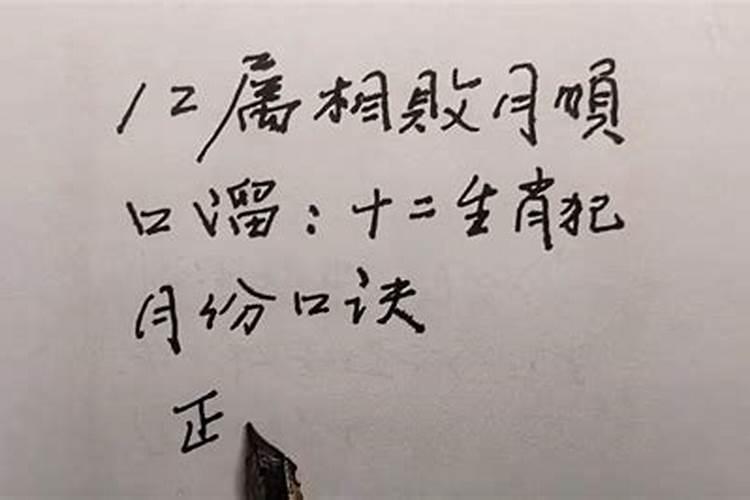 12属相败月順
口溜：十二生肖犯
月份口诀
正